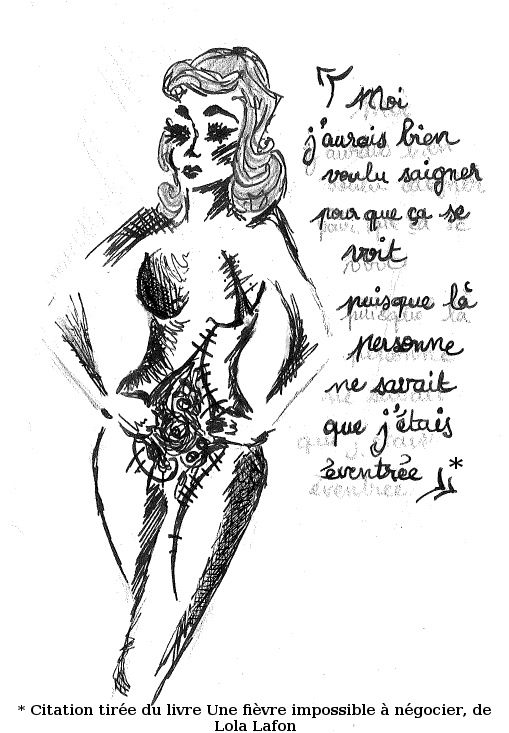 Moi
j'aurais bien
voulu saigner
pour que ça se
voit
puisque là
personne
ne savait
que j'étais
éventrée *
* Citation tirée du livre Une fièvre impossible à négocier, de
Lola Lafon